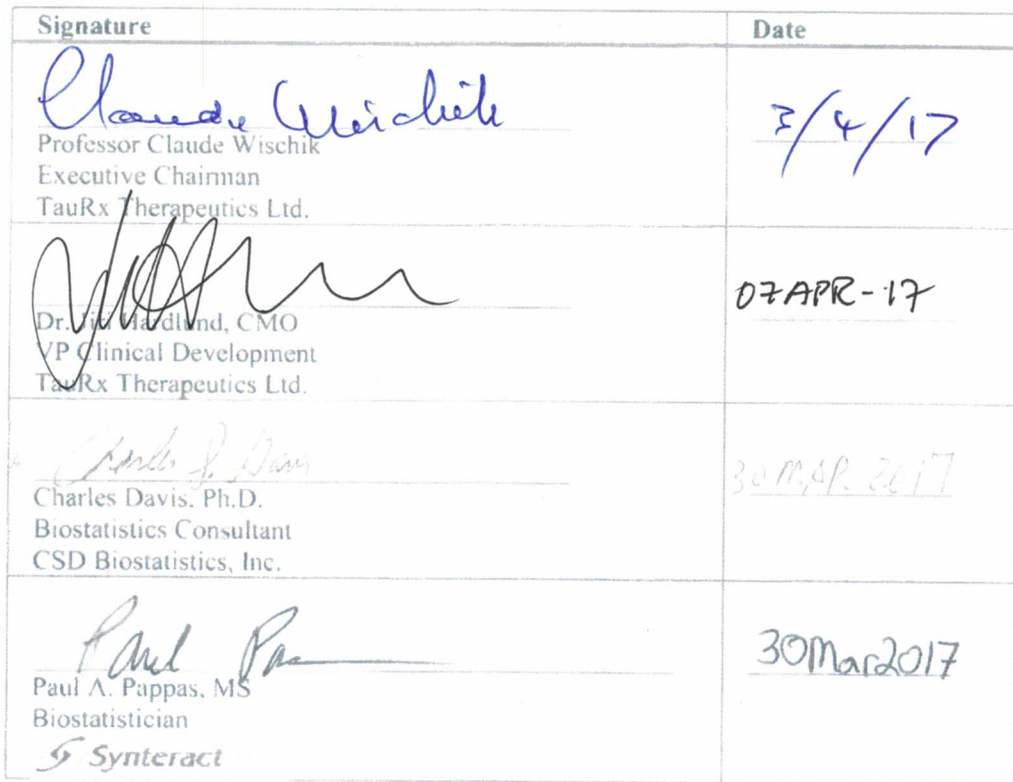 Signature Date
Claude Wischik 3/4/17
Professor Claude Wischik
Executive Chairman
TauRx Therapeutics Ltd.
07APR-17
Dr. Jiri Hardlund, CMO
VP Clinical Development
TauRx Therapeutics Ltd.
Charles S. Davis 30 MAR 2017
Charles Davis, Ph.D.
Biostatistics Consultant
CSD Biostatistics, Inc.
Paul Pa 30Mar2017
Paul A. Pappas, MS
Biostatistician
Synteract